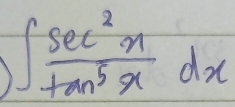 ) ∫ sec² x / tan⁵ x dx